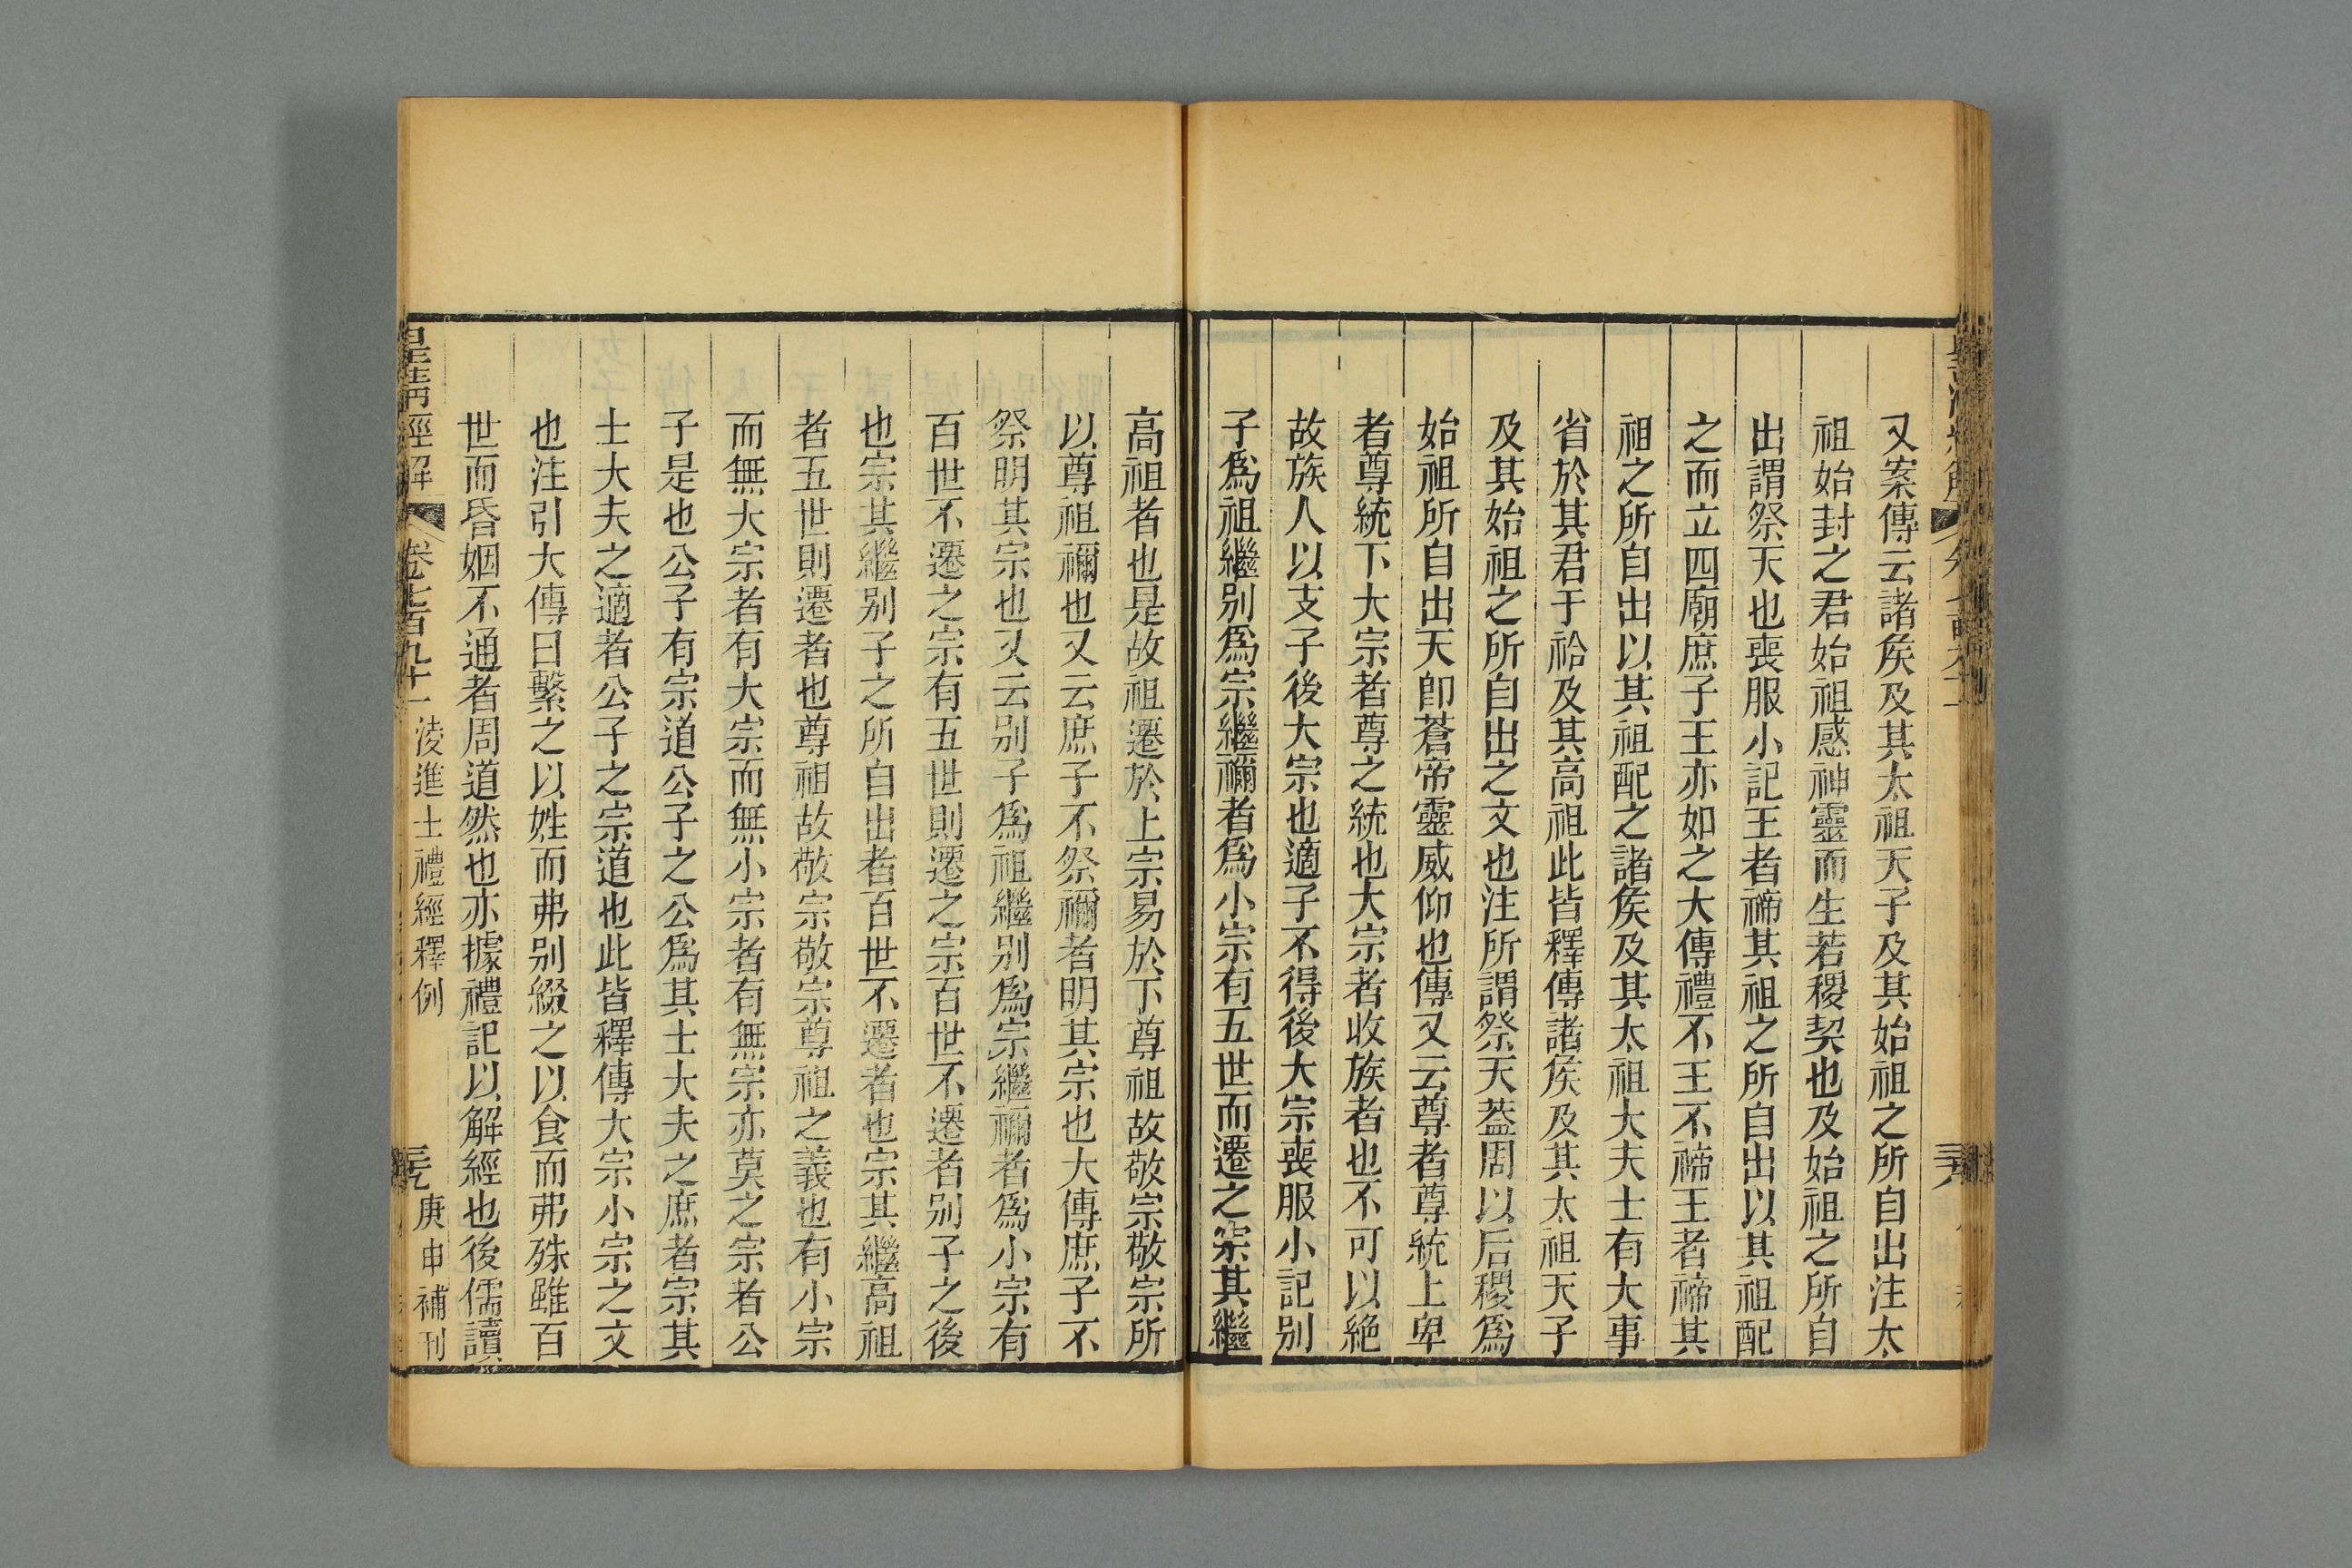 又案傳云諸矦及其太祖天子及其始祖之所自出注太
祖始封之君始祖感神靈而生若稷契也及始祖之所自
出謂祭天也喪服小記王者禘其祖之所自出以其祖配
之而立四廟庶子王亦如之大傳禮不王不禘王者禘其
祖之所自出以其祖配之諸矦及其太祖大夫士有大事
省於其君于祫及其高祖此皆釋傳諸矦及其太祖天子
及其始祖之所自出之文也注所謂祭天葢周以后稷爲
始祖所自出天卽蒼帝靈威仰也傳又云尊者尊統上卑
者尊統下大宗者尊之統也大宗者收族者也不可以絶
故族人以支子後大宗也適子不得後大宗喪服小記别
子爲祖繼别爲宗繼禰者爲小宗有五世而遷之宗其繼
高祖者也是故祖遷於上宗易於下尊祖故敬宗敬宗所
以尊祖禰也又云庶子不祭禰者明其宗也大傳庶子不
祭明其宗也又云别子爲祖繼别爲宗繼禰者爲小宗有
百世不遷之宗有五世則遷之宗百世不遷者别子之後
也宗其繼别子之所自出者百世不遷者也宗其繼高祖
者五世則遷者也尊祖故敬宗敬宗尊祖之義也有小宗
而無大宗者有大宗而無小宗者有無宗亦莫之宗者公
子是也公子有宗道公子之公爲其士大夫之庶者宗其
士大夫之適者公子之宗道也此皆釋傳大宗小宗之文
也注引大傳曰繫之以姓而弗别綴之以食而弗殊雖百
世而昏姻不通者周道然也亦據禮記以解經也後儒讀
皇淸經解 卷七百九十一 淩進士禮經釋例 庚申補刊